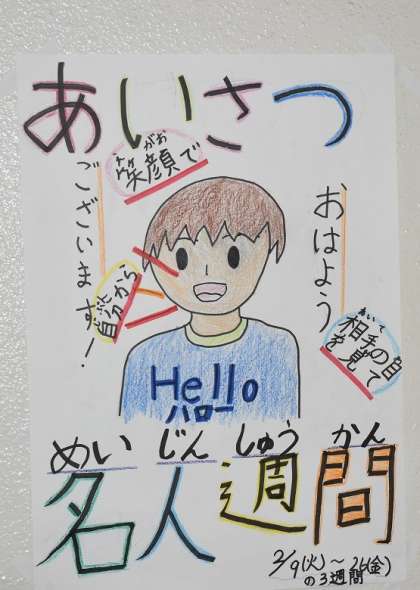 あいさつ
がお
笑顔で
おはよう
ございます!
あいて
相手の目
を見て
自分から
Hello
ハロー
めいじんしゅうかん
名人週間
2/9(火)~26(金)
の3週間